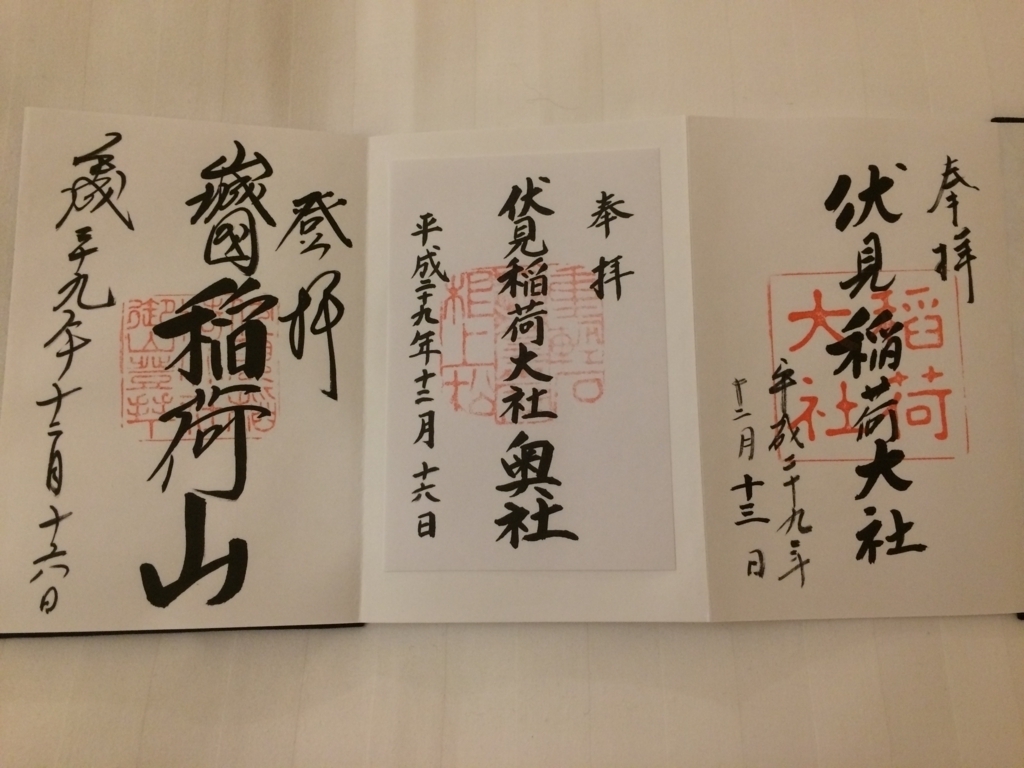 奉拝
伏見稲荷大社
平成二十九年
十二月十三日
稲荷
大社
奉拝
伏見稲荷大社奥社
平成二十九年十二月十六日
登拝
稲荷山
平成二十九年十二月十六日
御山登拝